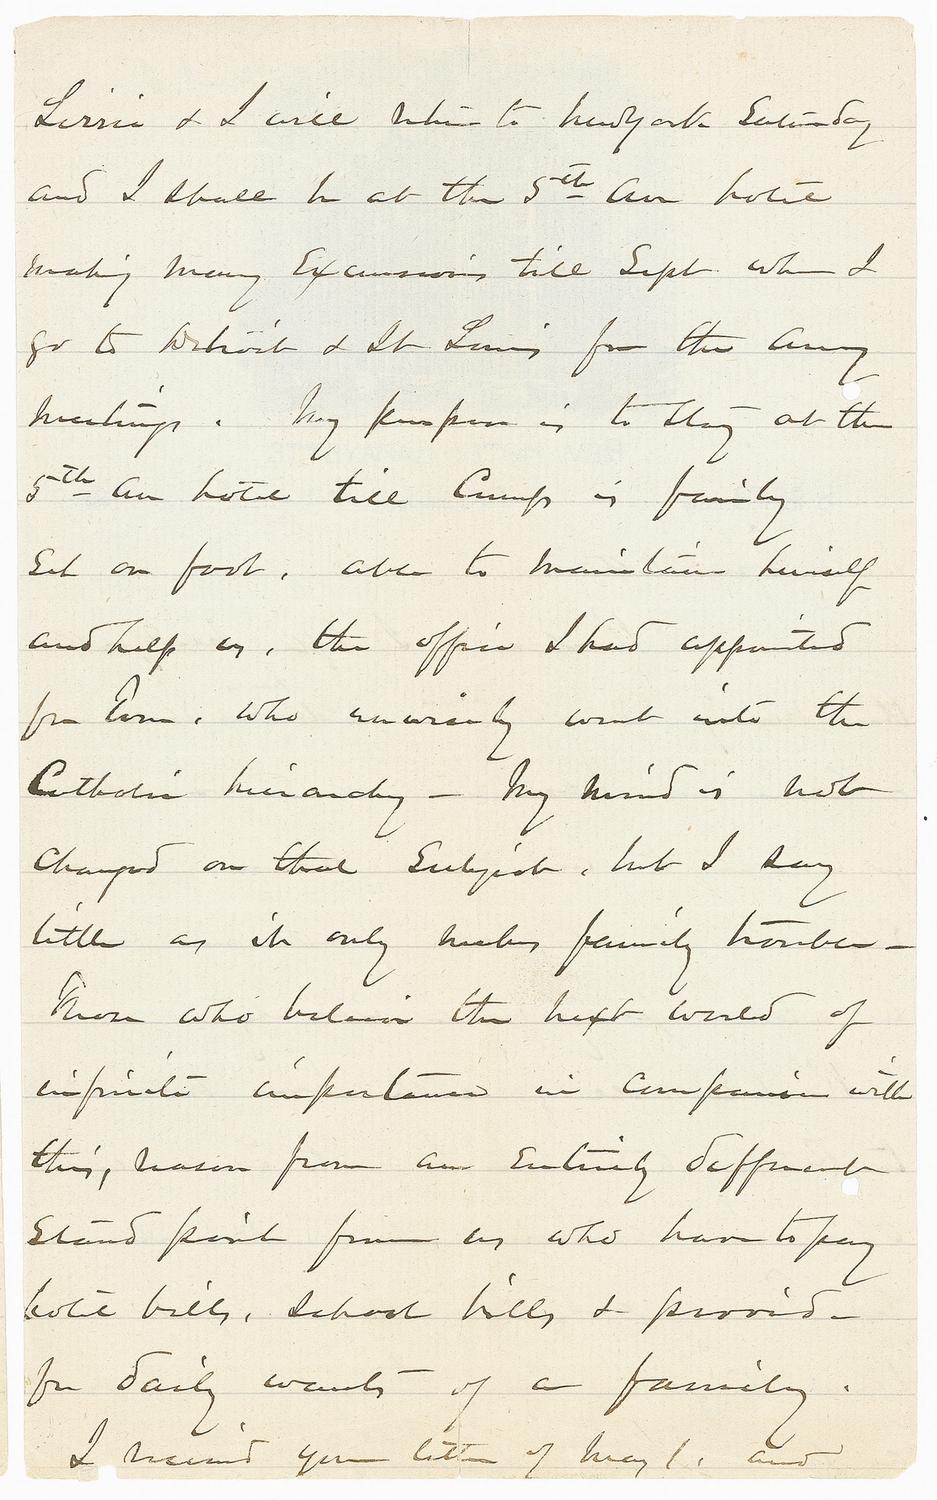 Lizzie & I will return to New York Saturday
and I shall be at the 5th Ave hotel
making many Excursions till Sept when I
go to Detroit & St Louis for the Army
meetings. My purpose is to stay at the
5th Ave hotel till Cump is fairly
set on foot, able to maintain himself
and help us, the office I had appointed
for Tom, who unwisely went into the
Catholic hierarchy — My mind is not
changed on that Subject, but I say
little as it only makes family trouble —
Those who believe the next world of
infinite importance in comparison with
this, reason from an Entirely different
stand point from us who have to pay
hotel bills, school bills & provide
for daily wants of a family.
I received your letter of May 1, and